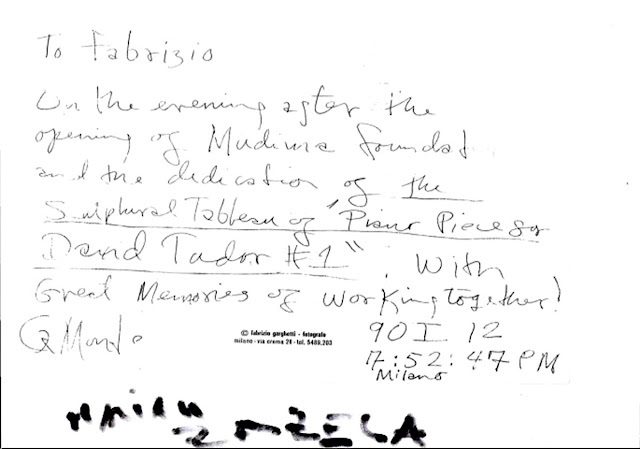 To Fabrizio
On the evening after the
opening of Mudima Foundat
and the dedication of the
Sculptural Tableau of "Piano Piece for
David Tudor #1". With
Great Memories of working together!
90 I 12
7:52:47 PM
Milano
© fabrizio garghetti - fotografo
milano - via crema 28 - tel. 5489.203